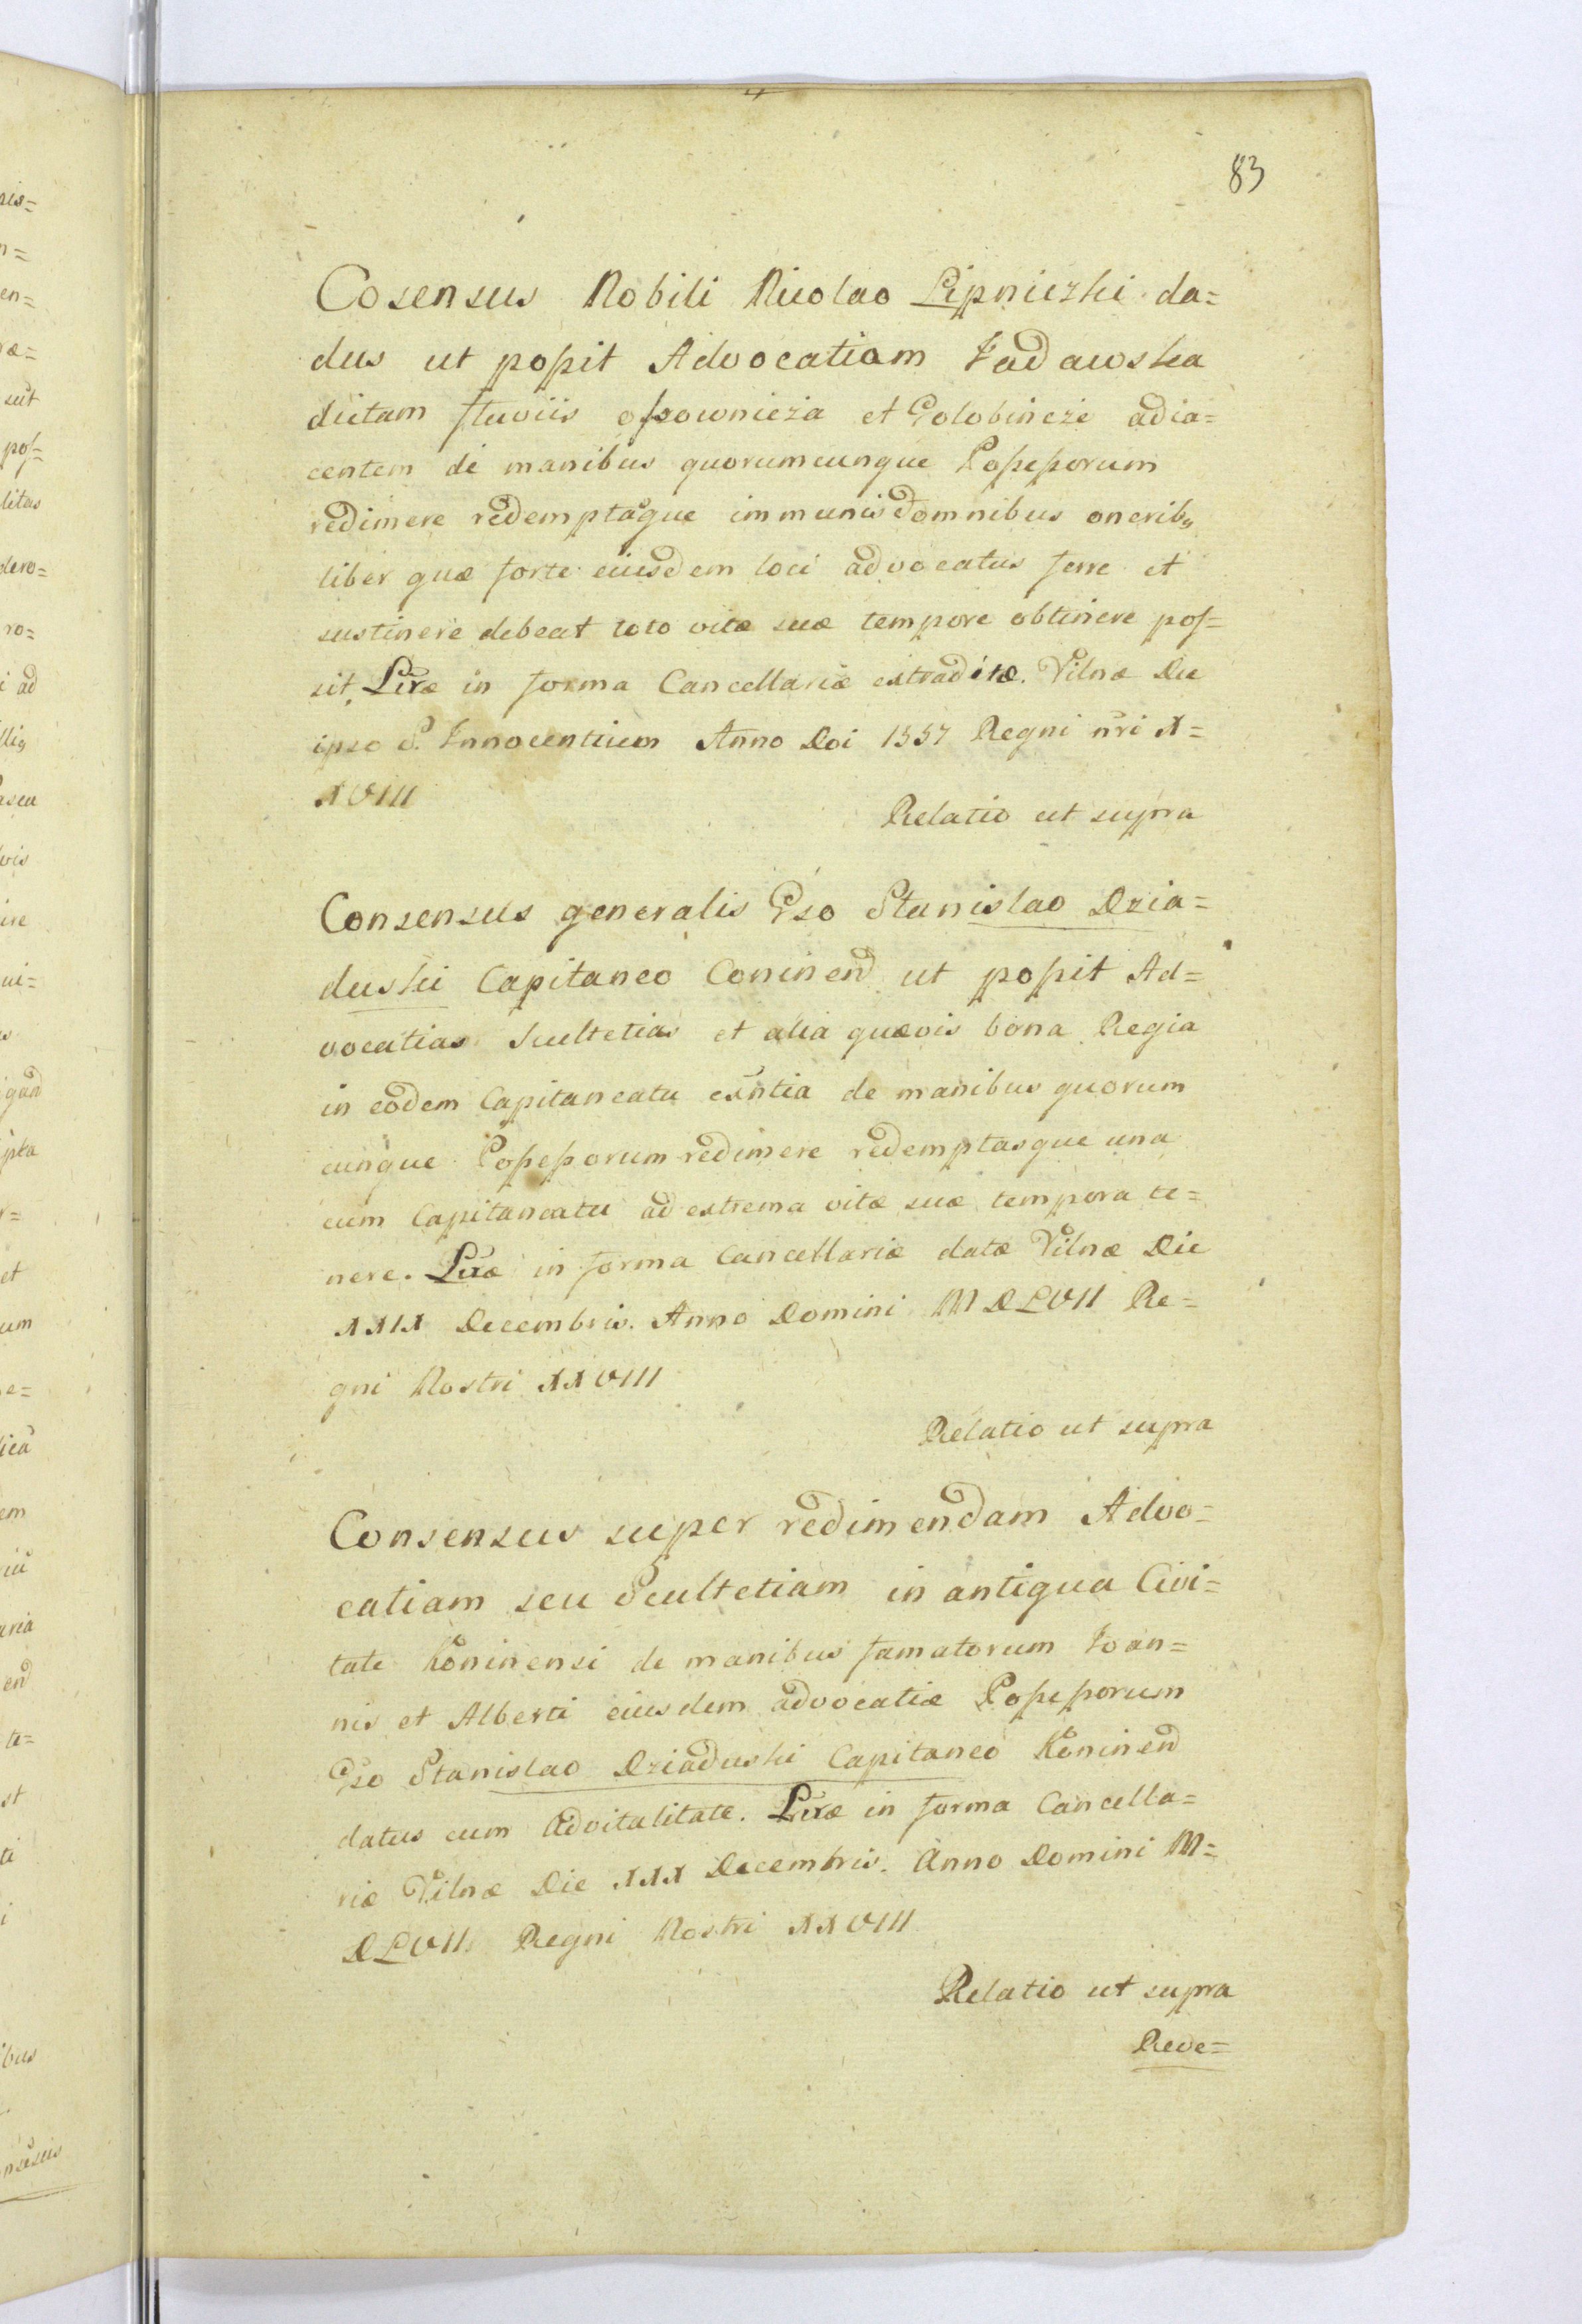 83
Cosensus Nobili Nicolao Lipniczki da=
dus ut poßit Advocatiam Jadawska
dictam fluviis oßownicza et Golobincze adia=
centem de manibus quorumcunque Poßeßorum
redimere redemptaque immunis domnibus onerib9
liber quæ forte eiusdem loci advocatus ferre et
sustinere debeat toto vitæ suæ tempore obtinere pos=
sit, Liræ in forma Cancellariæ extraditæ. Vilnæ Die
ipso S. Innocentium Anno Doi 1557 Regni nri X=
XVIII
Relatio ut supra
Consensus generalis Gso Stanislao Dzia=
duski Capitaneo Coninen ut poßit Ad=
vocatias Scultetias et alia quævis bona Regia
in eodem Capitaneatu exntia de manibus quorum
cunque Poßeßorum redimere redemptasque una
cum Capitaneatu ad extrema vitæ suæ tempora te=
nere. Liræ in forma Cancellariæ datæ Vilnæ Die
XXIX Decembris. Anno Domini MDLVII Re=
gni Nostri XXVIII
Relatio ut supra
Consensus super redimendam Advo=
catiam seu Scultetiam in antiqua Civi=
tate Koninensi de manibus famatorum Joan=
nis et Alberti eiusdem advocatiæ Poßeßorum
Gso Stanislao Dziaduski Capitaneo Koninen
datus cum advitalitate. Liræ in forma Cancella=
riæ Vilnæ Die XXX Decembris. Anno Domini M=
DLVII. Regni Nostri XXVIII
Relatio ut supra
Reve=